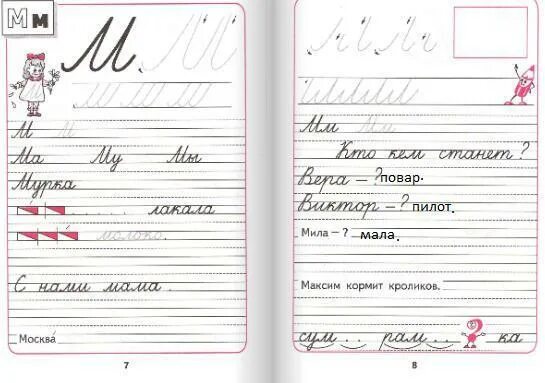 М м
М М М
М М М
М М
Ма Му Мы
Мурка
. . . . . . лакала
молоко.
С нами мама.
Москва́
7
Мм Мм
Кто кем станет?
Вера – ? повар.
Виктор – ? пилот.
Мила – ? мала.
Максим кормит кроликов.
сум . . рам . . ка
8